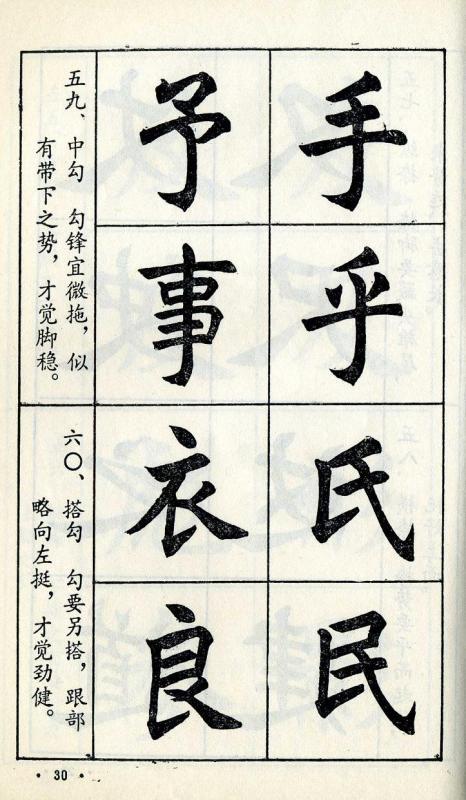 手
乎
氏
民
予
事
衣
良
五九、中勾　勾锋宜微拖，似
有带下之势，才觉脚稳。
六〇、搭勾　勾要另搭，跟部
略向左挺，才觉劲健。
·30·